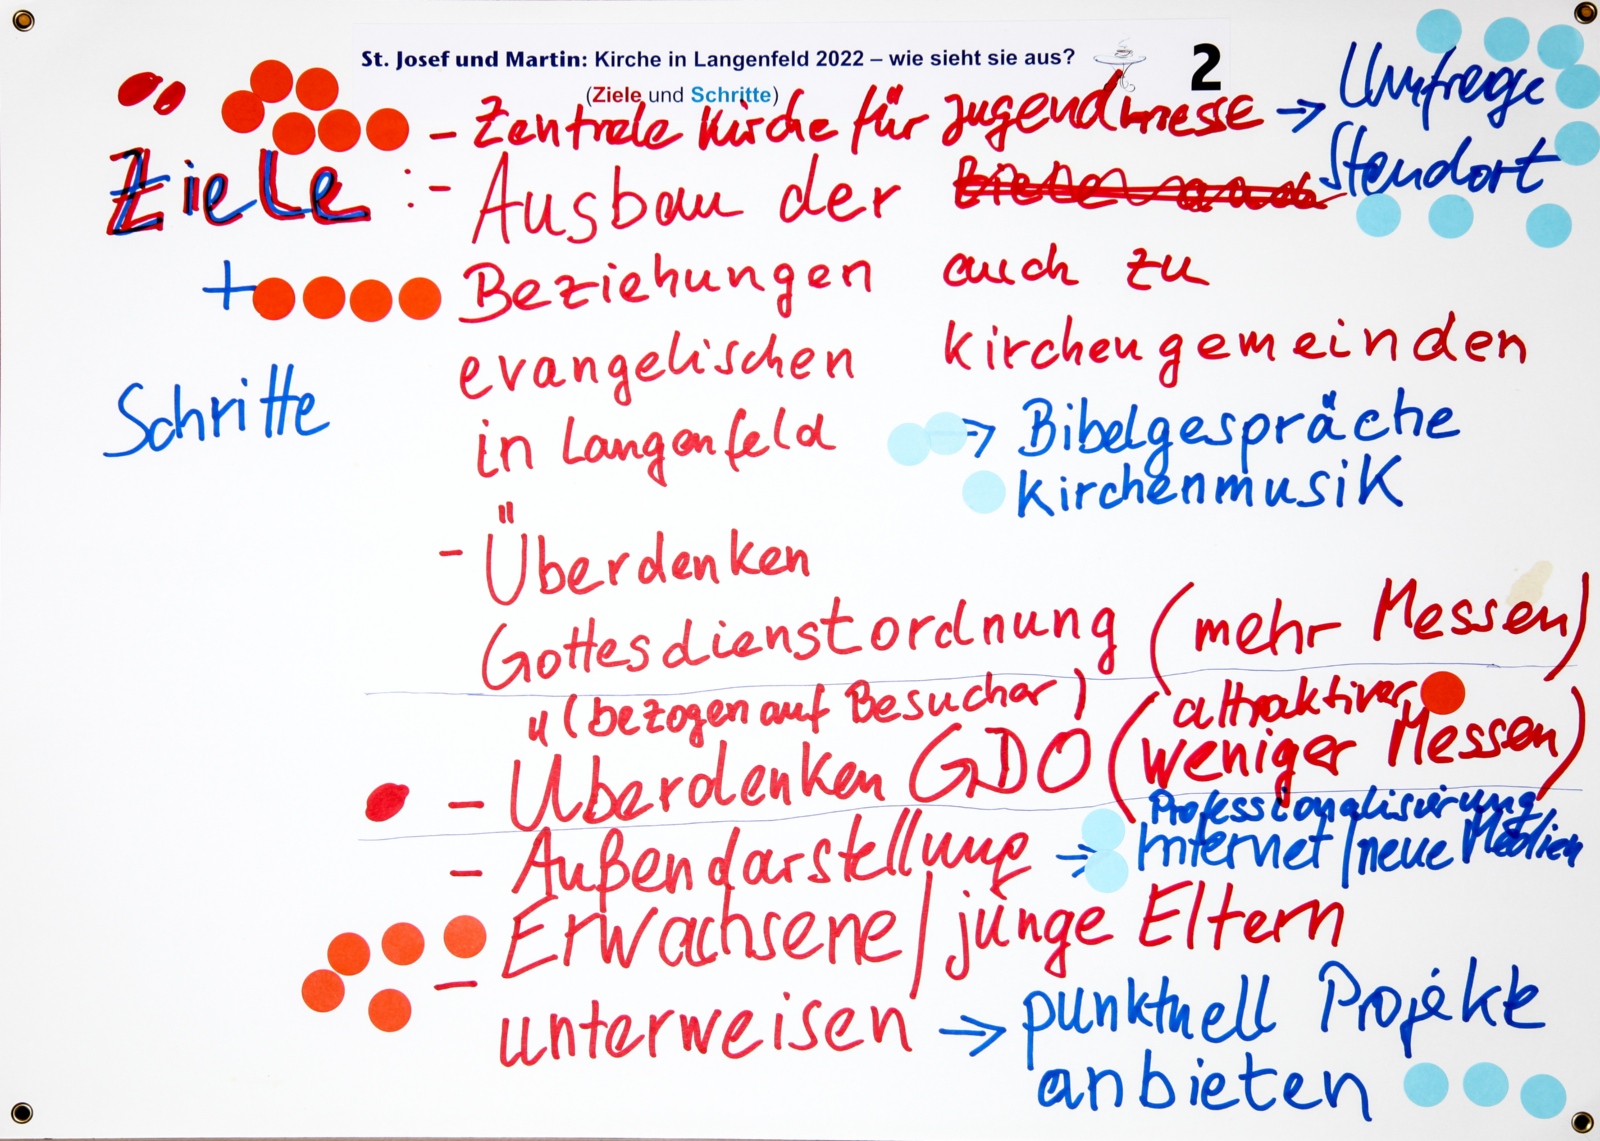 St. Josef und Martin: Kirche in Langenfeld 2022 – wie sieht sie aus?
2
(Ziele und Schritte)
- Zentrale Kirche für Jugendmesse → Umfrage
Standort
Ziele : - Ausbau der
+ Beziehungen auch zu
evangelischen Kirchengemeinden
Schritte
in Langenfeld → Bibelgespräche
Kirchenmusik
- Überdenken
Gottesdienstordnung (mehr Messen)
(bezogen auf Besucher) (attraktiver
- Überdenken GDO weniger Messen)
Professionalisierung
- Außendarstellung → Internet/neue Medien
- Erwachsene/junge Eltern
unterweisen → punktuell Projekte
anbieten